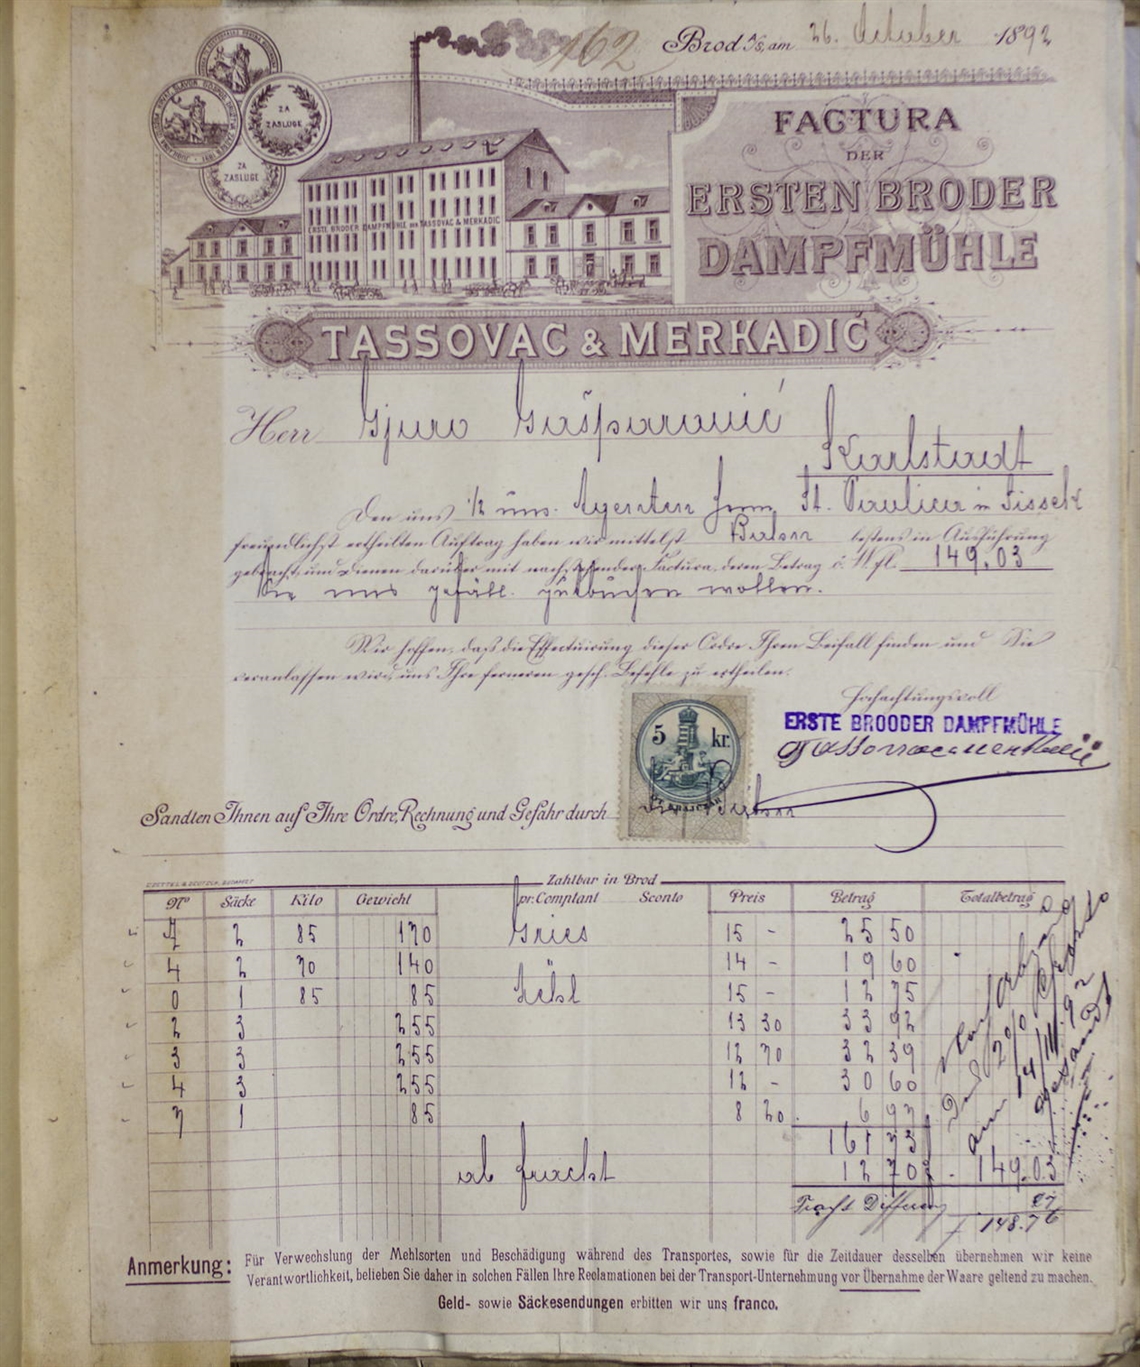 162
Brod a/S, am 26. October 1892
ZA ZASLUGE
ZA ZASLUGE
ERSTE BRODER DAMPFMÜHLE DER TASSOVAC & MERKADIC
FACTURA
DER
ERSTEN BRODER
DAMPFMÜHLE
TASSOVAC & MERKADIĆ
Herr Gjuro Gašparović
Karlstadt
Den uns Agenten St. Paulica in Sissek
freundlichst ertheilten Auftrag haben wir mittelst Bahn bestens in Ausführung
gebracht, und dienen darüber mit nachstehender Factura, deren Betrag ö. W. fl. 149.03
Sie uns gefäll. gutbuchen wollen.
Wir hoffen, daß die Effectuirung dieser Ordre Ihren Beifall finden und Sie
veranlassen wird, uns Ihre ferneren gesch. Befehle zu ertheilen.
Hochachtungsvoll
ERSTE BROODER DAMPFMÜHLE
5 kr.
Sandten Ihnen auf Ihre Ordre, Rechnung und Gefahr durch die Bahn
Zahlbar in Brod
No Säcke Kilo Gewicht pr. Comptant Sconto Preis Betrag Totalbetrag
2 85 170 Gries 15 - 25 50
4 2 70 140 " 14 - 19 60
0 1 85 85 Mehl 15 - 12 75
2 3 255 13 30 33 92
3 3 255 12 70 32 39
4 3 255 12 - 30 60
7 1 85 8 20 6 97
161 73
ab Fracht 12 70 149.03
Fracht Differenz 27
148.76
2% Skonto
am 14/11. 92
gesandt
Anmerkung: Für Verwechslung der Mehlsorten und Beschädigung während des Transportes, sowie für die Zeitdauer desselben übernehmen wir keine
Verantwortlichkeit, belieben Sie daher in solchen Fällen Ihre Reclamationen bei der Transport-Unternehmung vor Übernahme der Waare geltend zu machen.
Geld- sowie Säckesendungen erbitten wir uns franco.